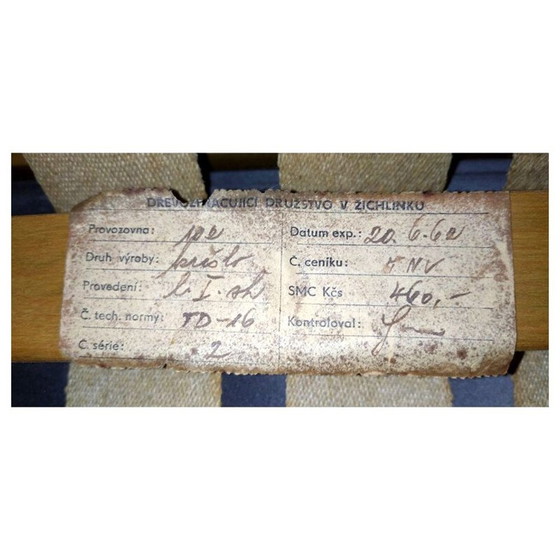 DŘEVOZPRACUJÍCÍ DRUŽSTVO V ŽICHLÍNKU
Provozovna:
Druh výroby: křeslo
Provedení: I.
Č. tech. normy: TD-16
Č. série: 2
Datum exp.: 20.6.62
Č. ceníku: NV
SMC Kčs 460,-
Kontroloval: